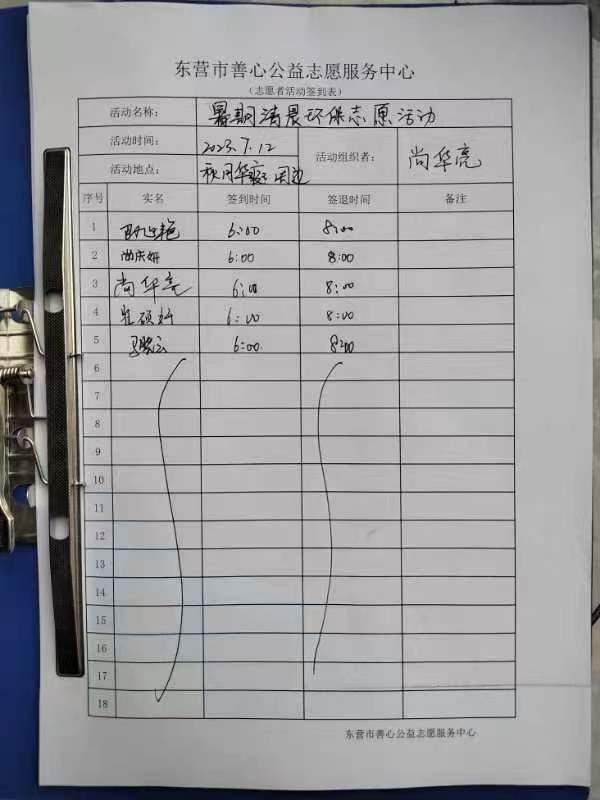 东营市善心公益志愿服务中心
(志愿者活动签到表)
活动名称: 暑期清晨环保志愿活动
活动时间: 2023.7.12 活动组织者: 尚华亮
活动地点: 周边
序号 实名 签到时间 签退时间 备注
1 6:00 8:00
2 6:00 8:00
3 尚华亮 6:00 8:00
4 6:00 8:00
5 6:00 8:00
6
7
8
9
10
11
12
13
14
15
16
17
18
东营市善心公益志愿服务中心